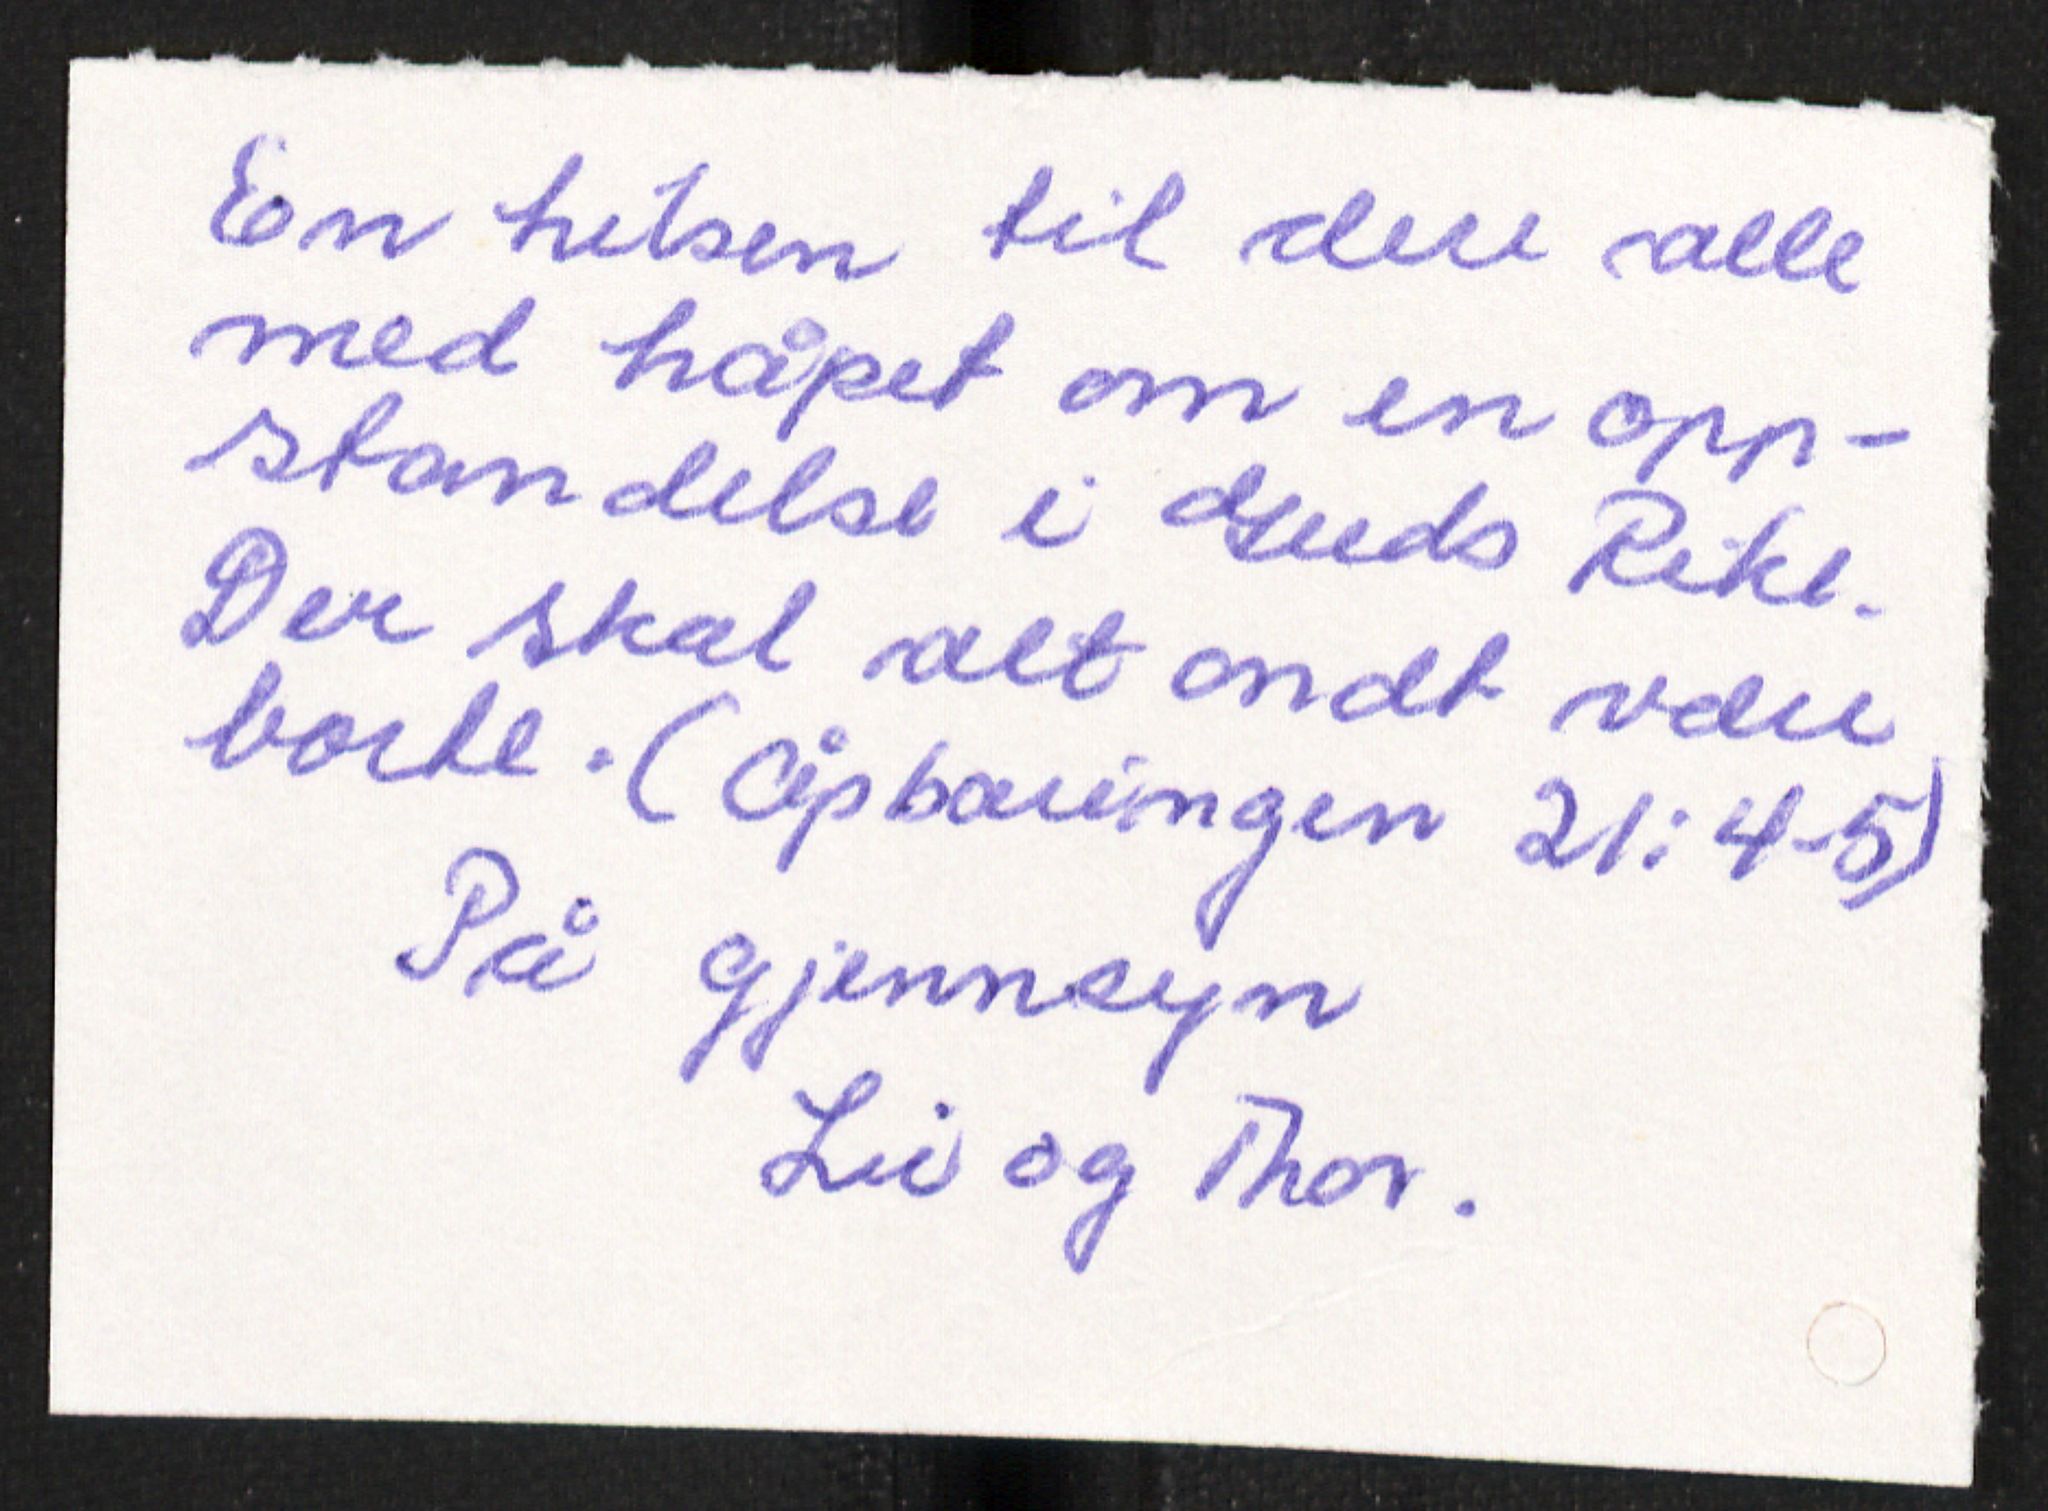 En hilsen til dere alle
med håpet om en opp-
standelse i Guds Rike.
Der skal alt ondt være
borte. (Åpbaringen 21:4-5)
På gjennsyn
Liv og Thor.